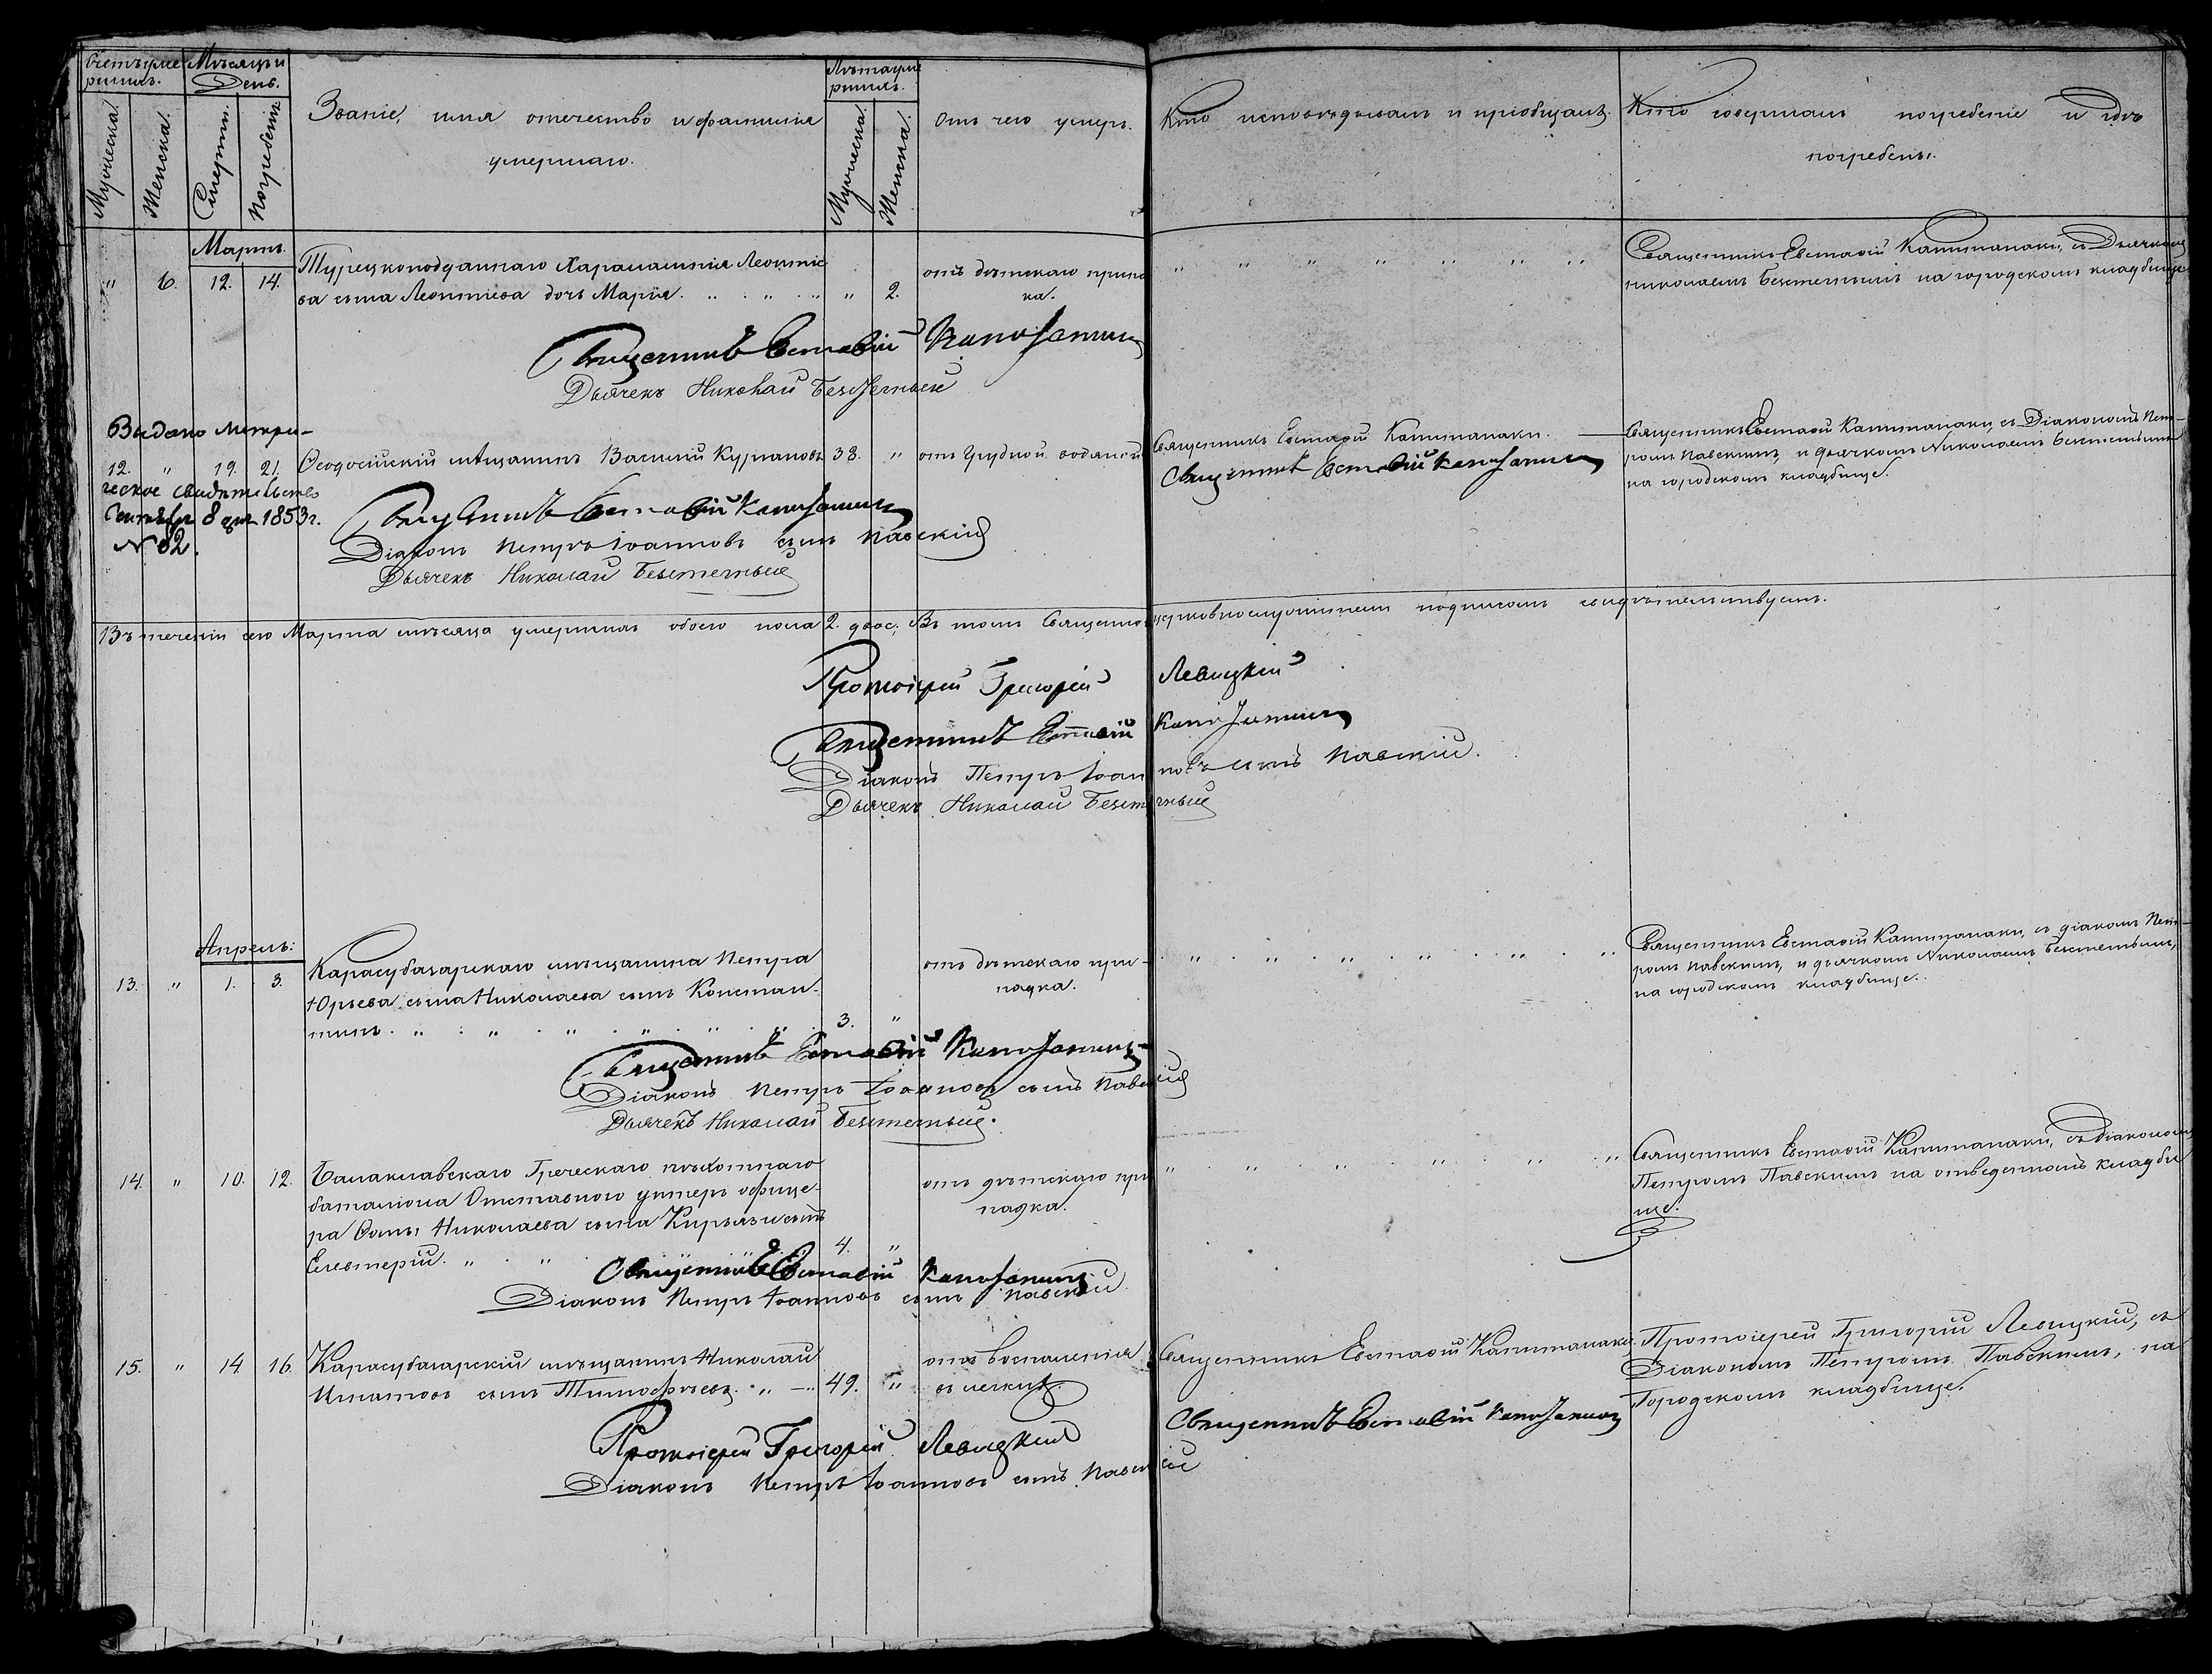 Счетъ умер
шихъ.
Мѣсяцъ и
День.
Мужеска.
Женска.
Смерти.
Погребенія.
Званіе, имя отечество и фамилія
умершаго.
Лѣта умер
шихъ.
Мужеска.
Женска.
Отъ чего умеръ.
Кто исповѣдывалъ и пріобщалъ.
Кто совершалъ погребеніе и гдѣ
погребены.
Мартъ.
" 6. 12. 14. Турецкоподданнаго Харалампія Леонтіе
ва сына Леонтіева дочь Марія. " " " " 2. отъ дѣтскаго припад
ка.
" " " " " " "
Священникъ Евстафій Капитанаки, съ Дьячкомъ
Николаемъ Безстетнымъ на городскомъ кладбище
Священникъ Евстафій Капитанаки
Дьячекъ Николай Безстетный
Видано метри-
12. " 19. 21. Ѳеодосійскій мѣщанинъ Василій Кургановъ 38. " отъ грудной водяной
Священникъ Евстафій Капитанаки.
Священникъ Евстафій Капитанаки съ Діакономъ Пет-
ческое свидѣтельство
Священникъ Евстафій Капитанаки
ромъ Павскимъ, и дьячкомъ Николаемъ Безстетнымъ
на городскомъ кладбище.
Сентября 8 дня 1853 г.
N 82.
Священникъ Евстафій Капитанаки
Діаконъ Петръ Іоанновъ сынъ Павскій
Дьячекъ Николай Безстетный
Въ теченіи сего Марта мѣсяца умершихъ обоего пола 2. двое, Въ томъ Священно церковнослужители подписомъ свидѣтельствуемъ.
Протоіерей Григорій Левицкій
Священникъ Евстафій Капитанаки
Діаконъ Петръ Іоанновъ сынъ Павскій.
Дьячекъ Николай Безстетный
Апрель:
13. " 1. 3. Карасубазарскаго мѣщанина Петра
Юрьева сына Николаева сынъ Констан-
тинъ. " " " " " " 3. "
отъ дѣтскаго при-
падка.
" " " " " "
Священникъ Евстафій Капитанаки, съ діакономъ Пет-
ромъ Павскимъ, и дьячкомъ Николаемъ Безстетнымъ,
на городскомъ кладбище.
Священникъ Евстафій Капитанаки
Діаконъ Петръ Іоанновъ сынъ Павскій
Дьячекъ Николай Безстетный.
14. " 10. 12. Балаклавскаго Греческаго пѣхотнаго
баталіона Отставного унтеръ офице-
ра Ѳомы Николаева сына Кирьязи сынъ
Елевтерій. " " 4. "
отъ дѣтскаго при
падка.
" " " " " "
Священникъ Евстафій Капитанаки, съ діакономъ
Петромъ Павскимъ на отведенномъ кладби
ще.
Священникъ Евстафій Капитанаки
Діаконъ Петръ Іоанновъ сынъ Павскій
15. " 14 16. Карасубазарскій мѣщанинъ Николай
Игнатовъ сынъ Тимофѣевъ. " 49. "
отъ воспаленія
въ легкихъ.
Священникъ Евстафій Капитанаки.
Священникъ Евстафій Капитанаки
Протоіерей Григорій Левицкій, съ
Діакономъ Петромъ Павскимъ, на
Городскомъ кладбище.
Протоіерей Григорій Левицкій
Діаконъ Петръ Іоанновъ сынъ Павскій